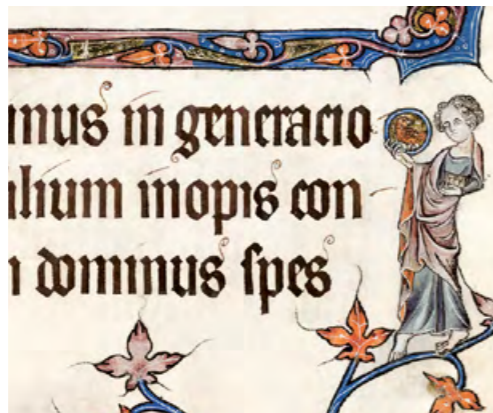 inus in generacio
lium inopis con
dominus spes